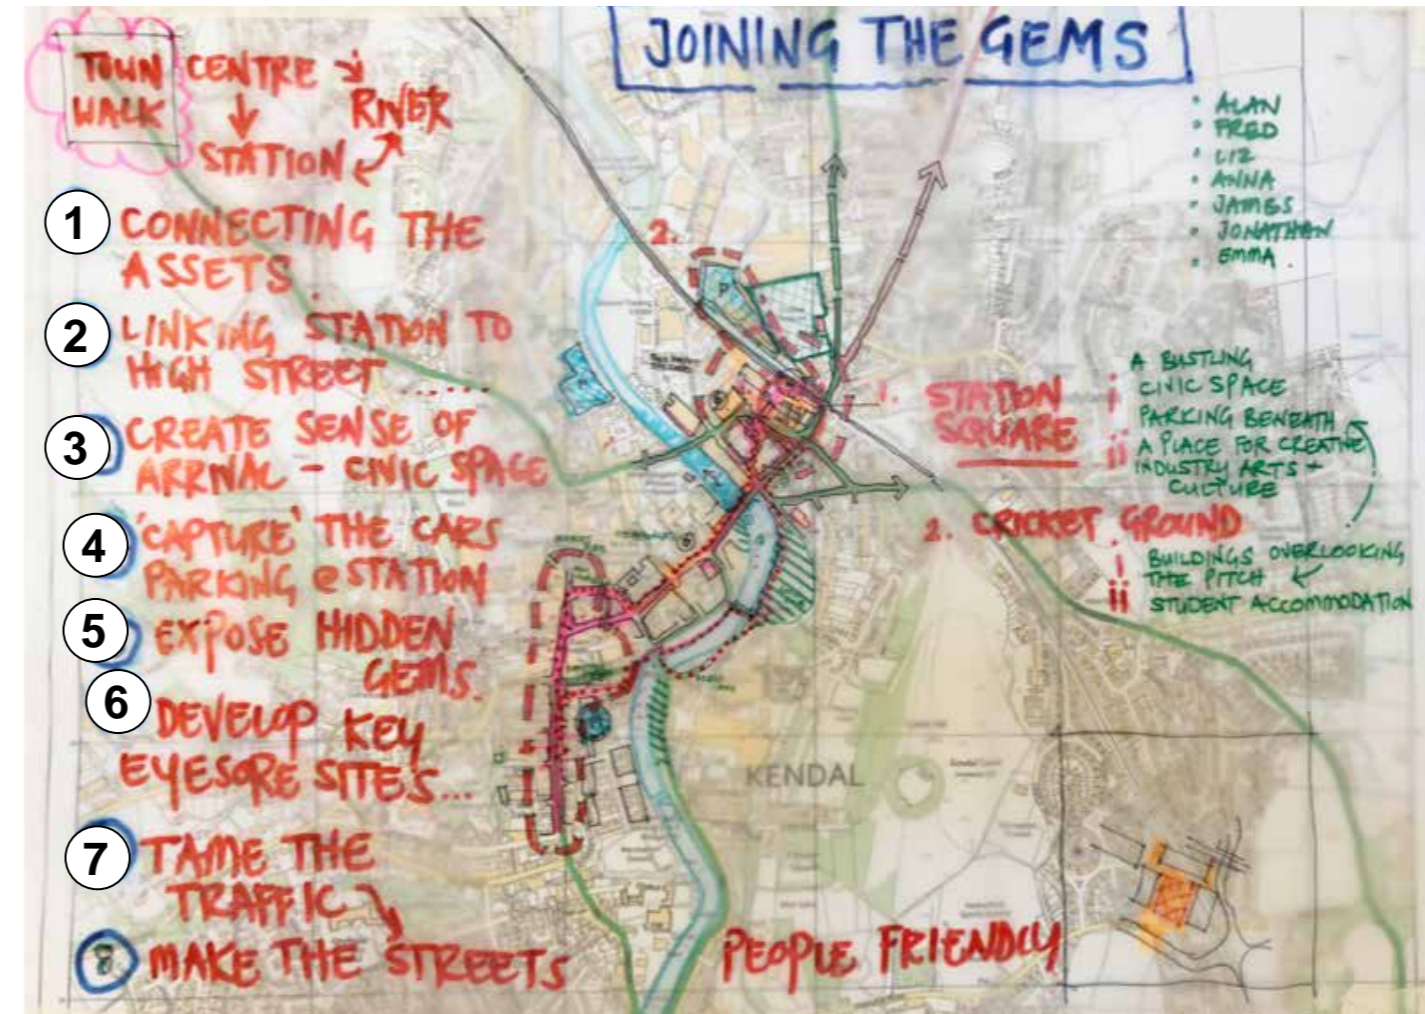 JOINING THE GEMS
TOWN WALK
CENTRE
RIVER
STATION
1 CONNECTING THE
ASSETS.
2 LINKING STATION TO
HIGH STREET ......
3 CREATE SENSE OF
ARRIVAL - CIVIC SPACE
4 'CAPTURE' THE CARS
PARKING @ STATION
5 EXPOSE HIDDEN
GEMS.
6 DEVELOP KEY
EYESORE SITES...
7 TAME THE
TRAFFIC
8 MAKE THE STREETS PEOPLE FRIENDLY
• ALAN
• FRED
• LIZ
• ANNA
• JAMES
• JONATHAN
• EMMA.
2.
P
1. STATION
SQUARE
i A BUSTLING
CIVIC SPACE
PARKING BENEATH
ii A PLACE FOR CREATIVE
INDUSTRY ARTS +
CULTURE
2. CRICKET GROUND
i BUILDINGS OVERLOOKING
THE PITCH
ii STUDENT ACCOMMODATION
KENDAL